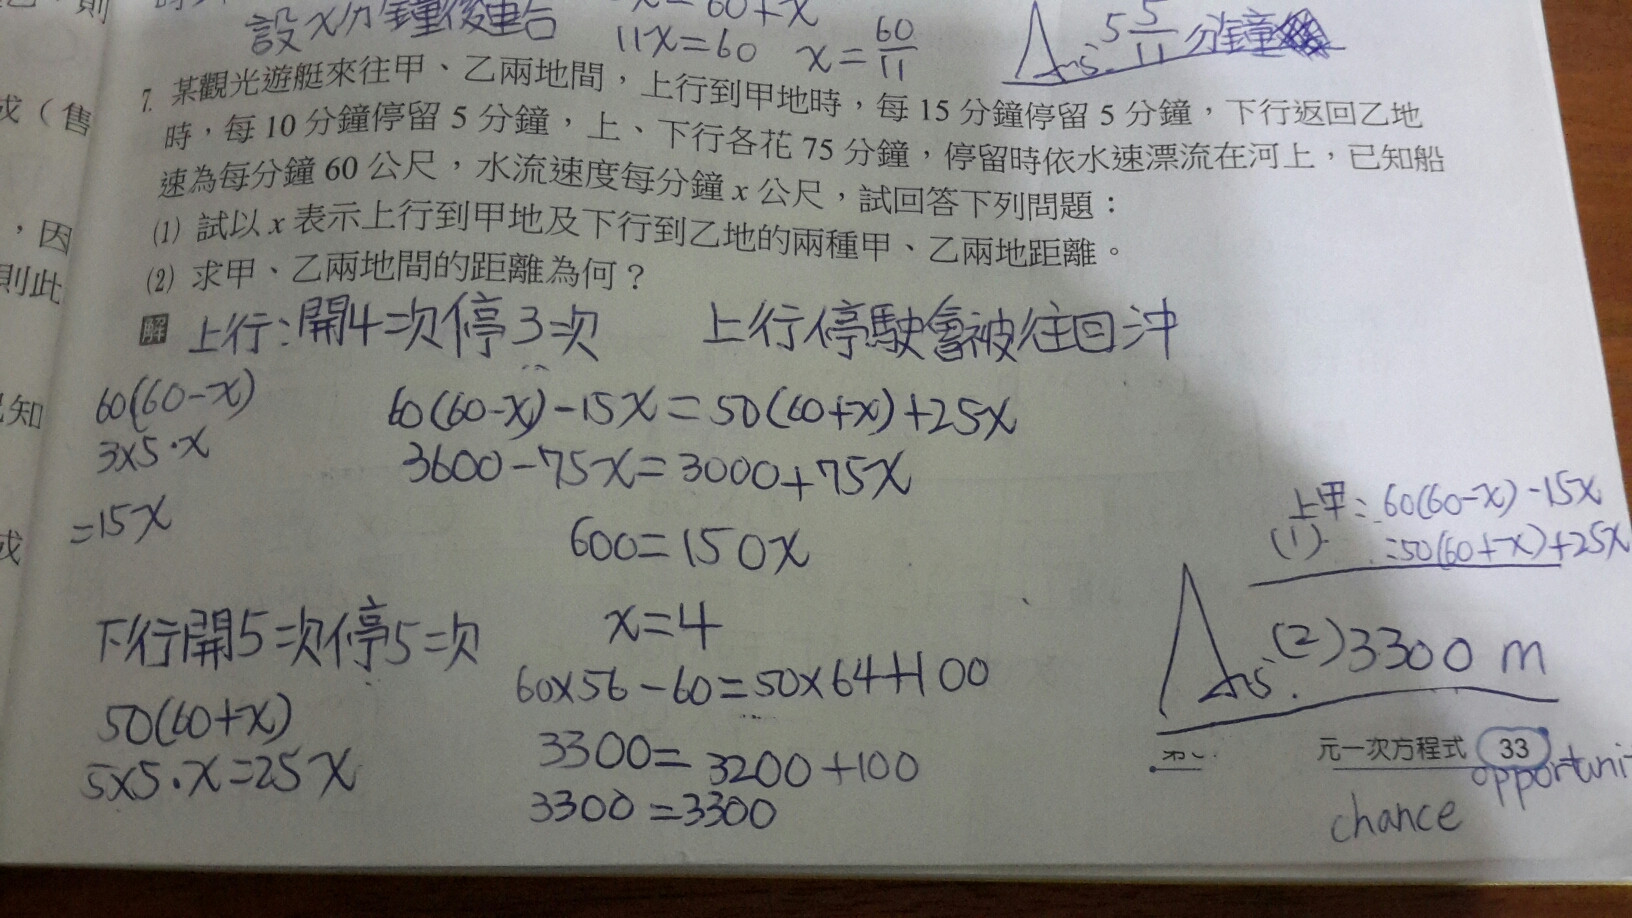 則
設x分鐘後重合
x=60+x
11x=60 x=60/11
Ans. 5 5/11 分鐘
7. 某觀光遊艇來往甲、乙兩地間，上行到甲地時，每 15 分鐘停留 5 分鐘，下行返回乙地
時，每 10 分鐘停留 5 分鐘，上、下行各花 75 分鐘，停留時依水速漂流在河上，已知船
速為每分鐘 60 公尺，水流速度每分鐘 x 公尺，試回答下列問題：
(1) 試以 x 表示上行到甲地及下行到乙地的兩種甲、乙兩地距離。
(2) 求甲、乙兩地間的距離為何？
或（售
，因
則此
知
或
解 上行:開4次停3次 上行停駛會被往回沖
60(60-x)
3x5·x
=15x
60(60-x)-15x=50(60+x)+25x
3600-75x=3000+75x
600=150x
x=4
60x56-60=50x64+100
3300=3200+100
3300=3300
下行開5次停5次
50(60+x)
5x5·x=25x
上甲: 60(60-x)-15x
(1) =50(60+x)+25x
Ans. (2)3300 m
元一次方程式 33
opportuni
chance